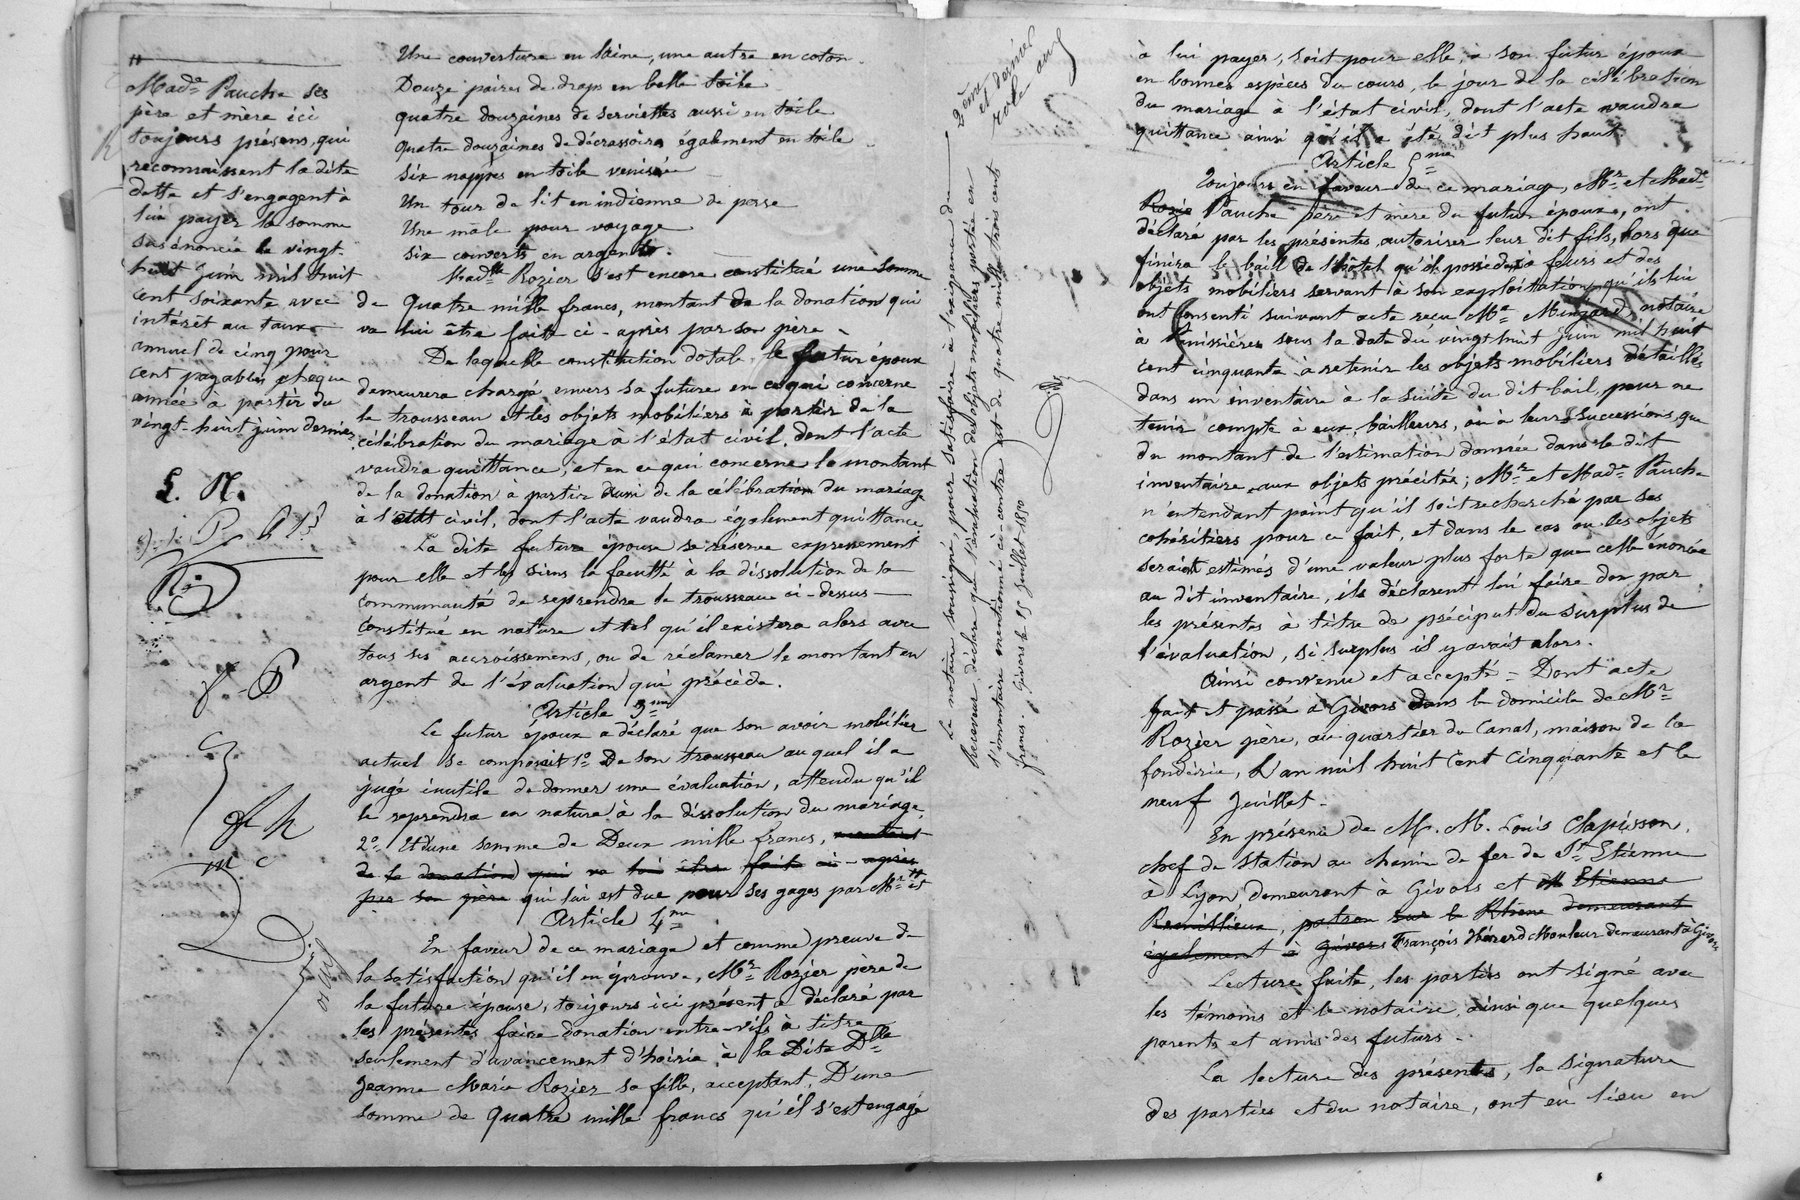 Une couverture en laine, une autre en coton
Douze paires de draps en belle toile
quatre douzaines de serviettes aussi en toile
quatre douzaines de décrassoirs également en toile
Six nappes en toile
Un tour de lit en indienne de perse
Une male pour voyage
Six couverts en argent
Madlle Rozier s'est encore constitué une somme
de quatre mille francs, montant de la donation qui
va lui être faite ci-après par son père
De laquelle constitution dotale, le futur époux
demeurera chargé envers sa future en ce qui concerne
le trousseau et les objets mobiliers à partir de la
célébration du mariage à l'état civil, dont l'acte
vaudra quittance; et en ce qui concerne le montant
de la donation à partir aussi de la célébration du mariage
à l'état civil, dont l'acte vaudra également quittance
La dite future épouse se réserve expressément
pour elle et les siens la faculté à la dissolution de la
communauté de reprendre le trousseau ci-dessus
constitué en nature et tel qu'il existera alors avec
tous ses accroissemens, ou de réclamer le montant en
argent de l'évaluation qui précède.
Article 3me
Le futur époux a déclaré que son avoir mobilier
actuel se composait 1o De son trousseau auquel il a
jugé inutile de donner une évaluation, attendu qu'il
le reprendra en nature à la dissolution du mariage
2o Et d'une somme de Deux mille francs, montant
de la donation qui va lui être faite ci-après
par son père qui lui est due pour ses gages par Mr et
Article 4me
En faveur de ce mariage et comme preuve de
la satisfaction qu'il en éprouve, Mr Rozier père de
la future épouse, toujours ici présent a déclaré par
les présentes faire donation entre-vifs à titre
seulement d'avancement d'hoirie à la Dite Dlle
Jeanne Marie Rozier sa fille, acceptant, D'une
somme de quatre mille francs qu'il s'est engagé
Made Pauche ses
père et mère ici
toujours présens, qui
reconnaissent la dite
dette et s'engagent à
lui payer la somme
susénoncée le vingt-
huit Juin mil huit
cent soixante avec
intérêt au taux
annuel de cinq pour
cent payables chaque
année à partir du
vingt-huit juin dernier
2ème
et dernier
rôle
Le notaire soussigné, pour satisfaire à l'exigence du
Receveur, déclare que l'évaluation des objets mobiliers portée en
l'inventaire mentionné ci-contre est de quatre mille trois cent
francs. Givors le 15 Juillet 1850
à lui payer, soit pour elle, à son futur époux
en bonnes espèces du cours, le jour de la célébration
du mariage à l'état civil, dont l'acte vaudra
quittance ainsi qu'il a été dit plus haut
Article 5me
Toujours en faveur de ce mariage, Mr et Made
Rozie Pauche père et mère du futur époux, ont
déclaré par les présentes, autoriser leur dit fils, lors que
finira le bail de l'hôtel qu'il possède à feurs et des
objets mobiliers servant à son exploitation, qu'ils lui
ont consenti suivant acte reçu Me notaire
à sous la date du vingt huit Juin mil huit
cent cinquante à retenir les objets mobiliers détaillés
dans un inventaire à la suite du dit bail, pour ne
tenir compte à eux, bailleurs, ou à leurs successions, que
du montant de l'estimation donnée dans le dit
inventaire aux objets précités; Mr et Made Pauche
n'entendant point qu'il soit recherché par ses
cohéritiers pour ce fait, et dans le cas où les objets
seraient estimés d'une valeur plus forte que celle énoncée
au dit inventaire, ils déclarent lui faire don par
les présentes à titre de préciput du surplus de
l'évaluation, si surplus il y avait alors.
Ainsi convenu et accepté = Dont acte
fait et passé à Givors dans le domicile de Mr
Rozier père, au quartier du Canal, maison de la
fonderie, L'an mil huit cent cinquante et le
neuf Juillet
En présence de M. M. Louis Clapisson,
chef de station au chemin de fer de St Etienne
à Lyon, demeurant à Givors et Etienne
patron sur le Rhône demeurant
également à Givors François Mouleur demeurant à Givors
Lecture faite, les parties ont signé avec
les témoins et le notaire, ainsi que quelques
parents et amis des futurs.
La lecture des présentes, la signature
des parties et du notaire, ont eu lieu en